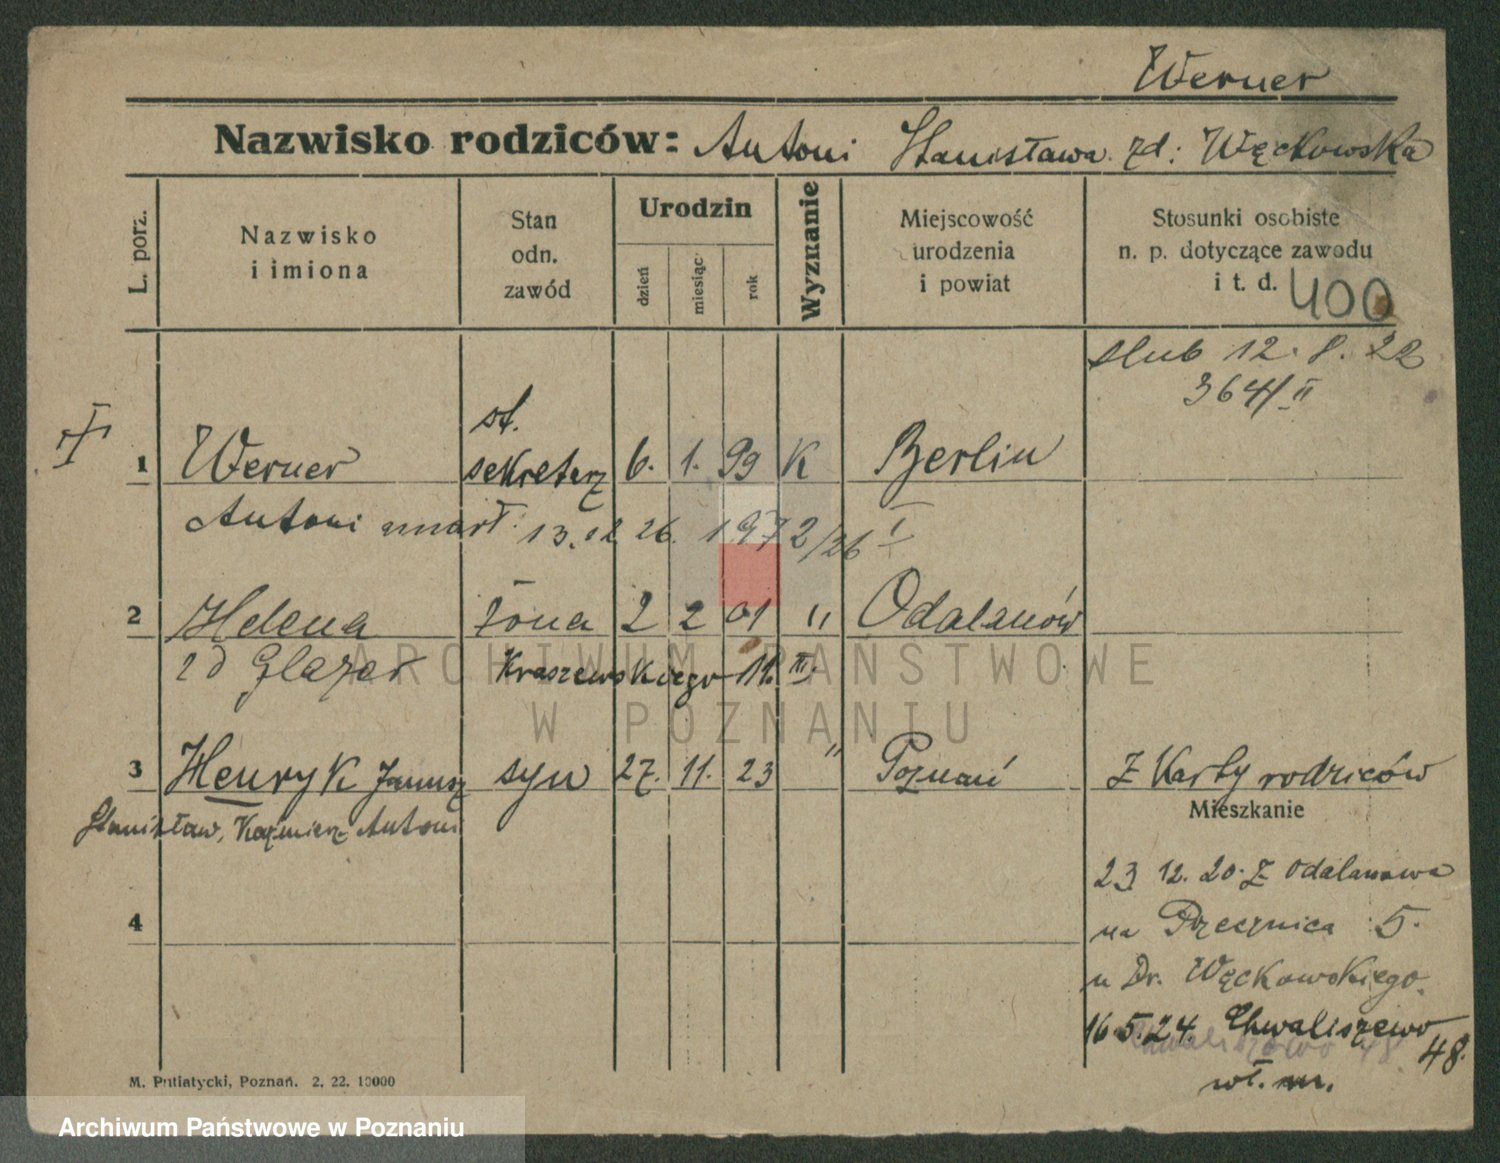 Werner
Nazwisko rodziców: Antoni Stanisława zd: Węckowska
L. porz.
Nazwisko
i imiona
Stan
odn.
zawód
Urodzin
dzień
miesiąc
rok
Wyznanie
Miejscowość
urodzenia
i powiat
Stosunki osobiste
n. p. dotyczące zawodu
i t. d. 400
slub 12. 8. 22
364/II
1 Werner st. sekretarz 6. 1. 99 K Berlin
Antoni umarł. 13. 12 26. 1972/26 I
2 Helena żona 2 2 01 " Odalanów
zd Glazar Kraszewskiego 11. III.
3 Henryk Janusz syn 27. 11. 23 " Poznań Z Karty rodziców
Stanisław, Kazimierz Antoni
Mieszkanie
23 12. 20. Z Odalanowa
na Przecznica 5.
u Dr. Węckowskiego.
4
16 5. 24. Chwaliszewo
Chwaliszewo 48
48.
wł. m.
M. Putiatycki, Poznań. 2, 22. 10000
ARCHIWUM PAŃSTWOWE
W POZNANIU
Archiwum Państwowe w Poznaniu